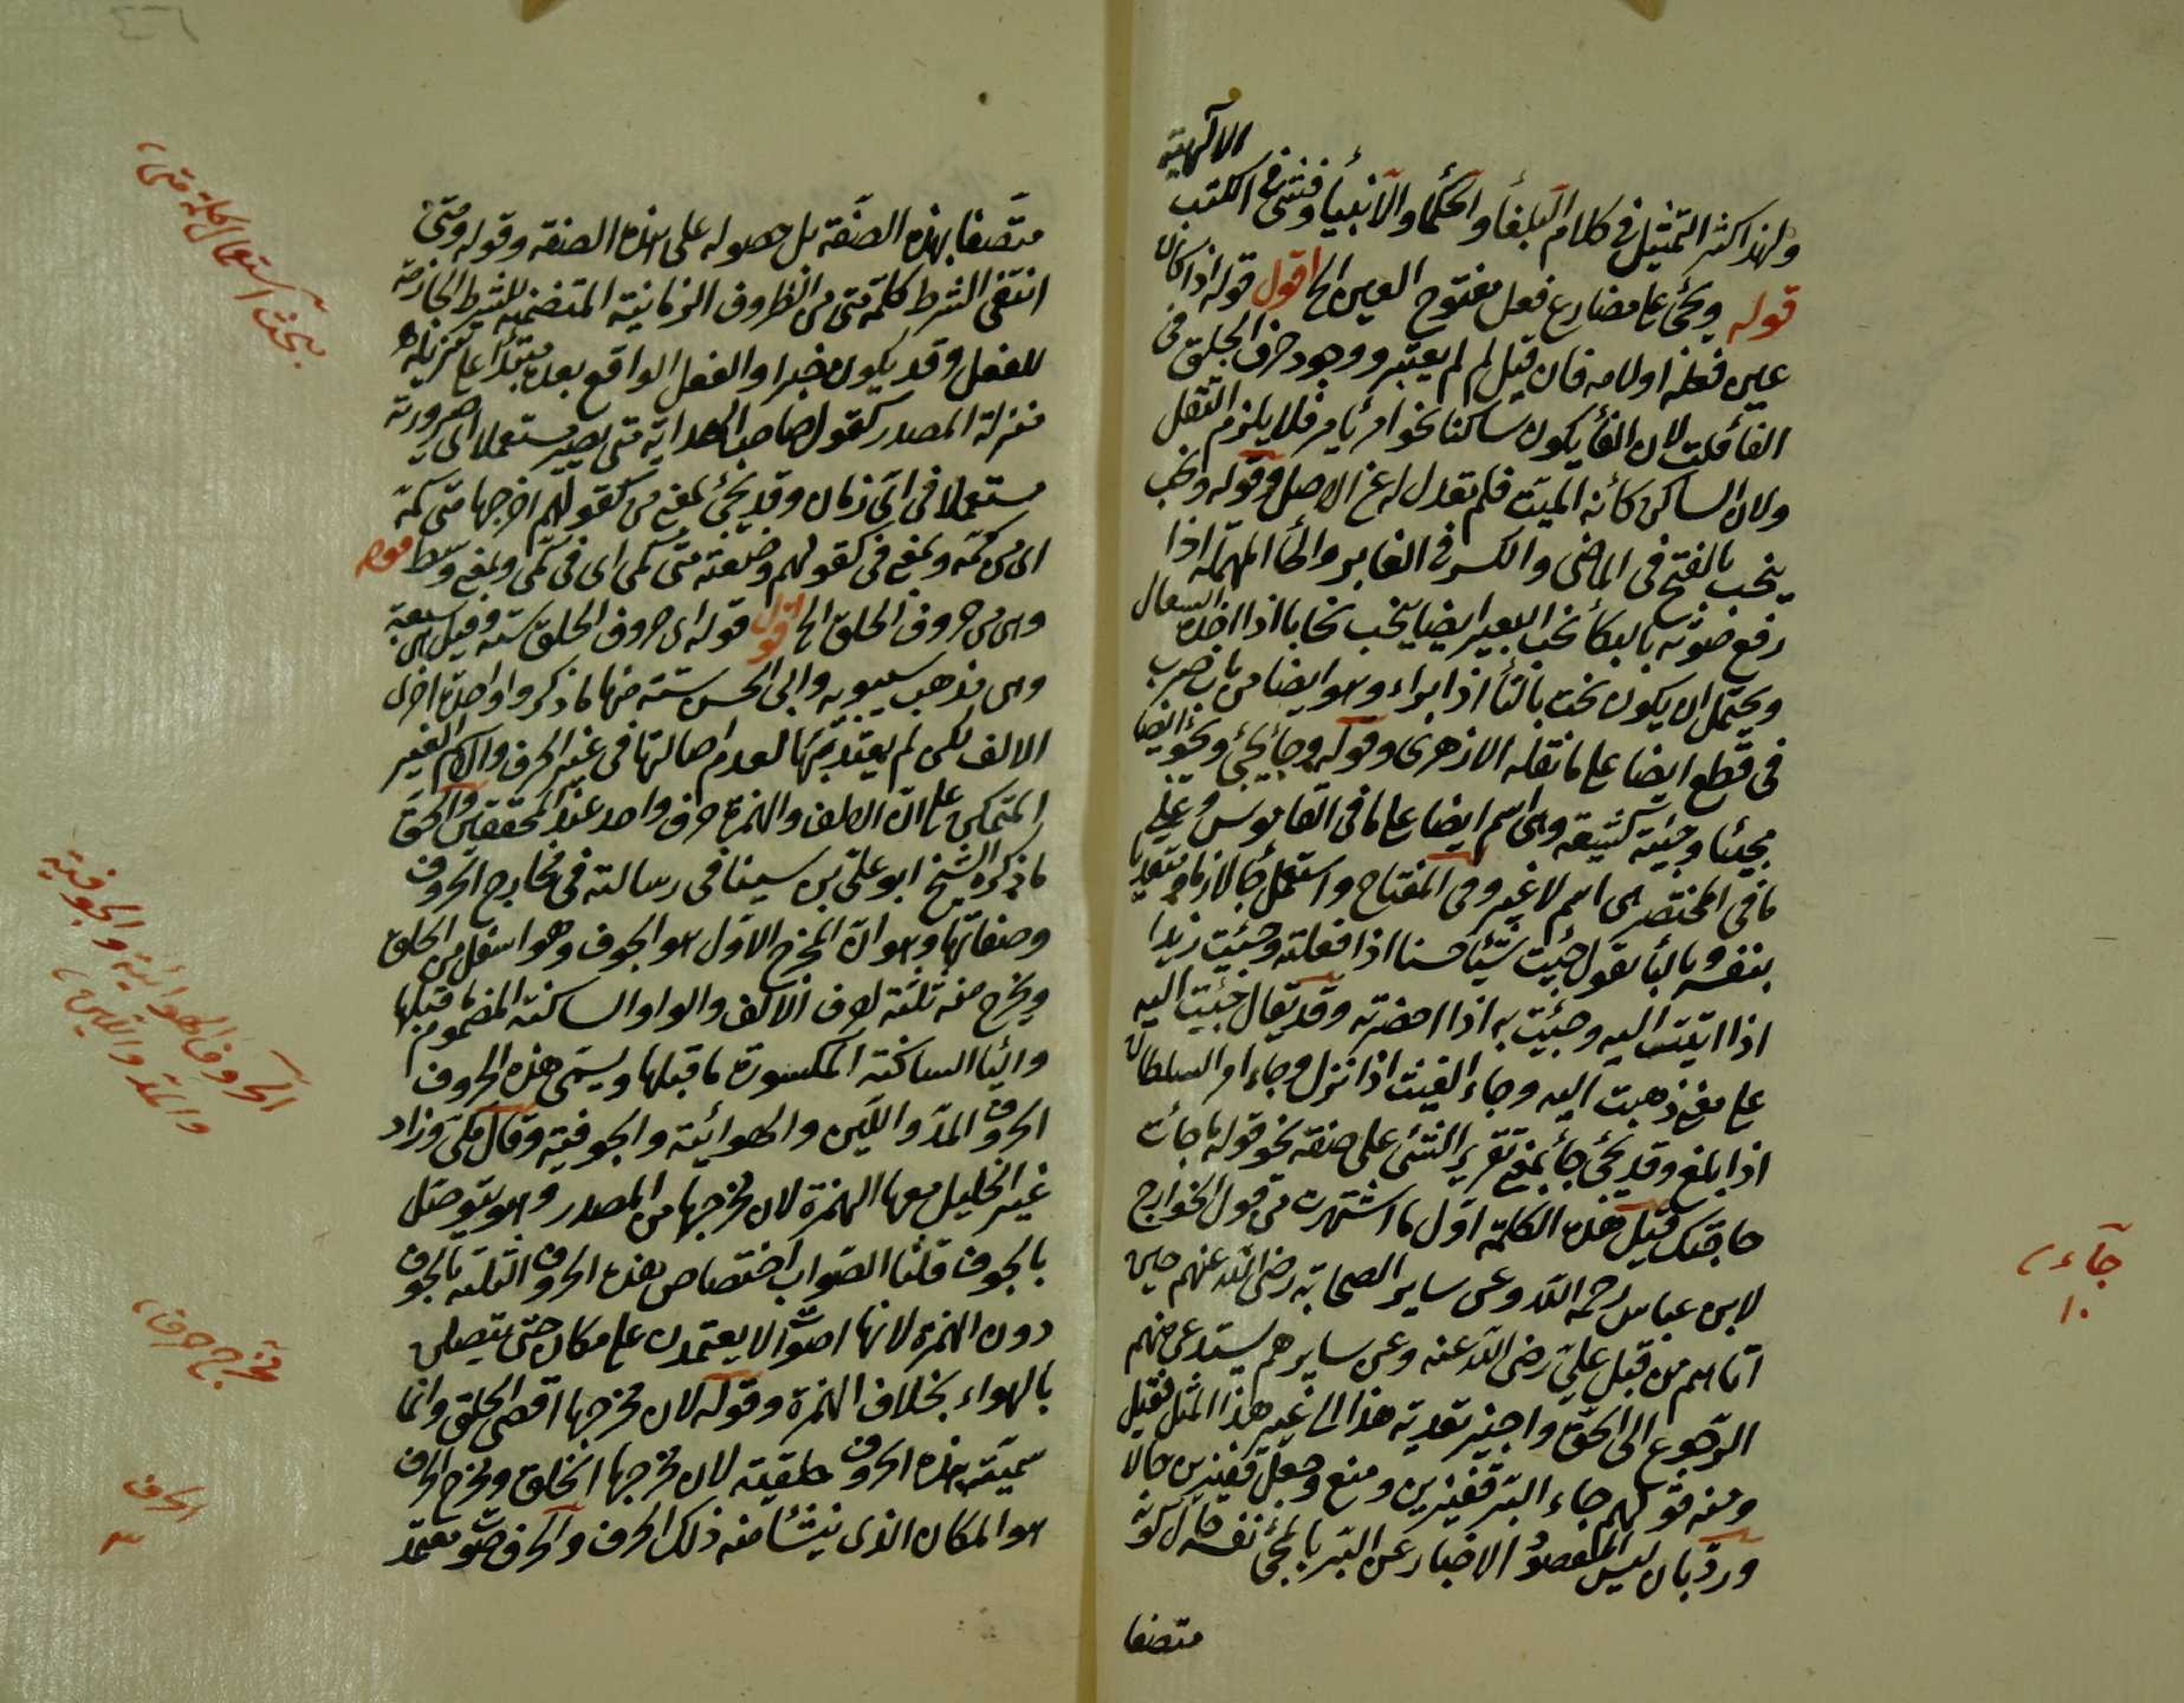 الالهية
ولهذا كثر التمثيل في كلام البلغأ والحكمأ والانبيأ وفشى في الكتب
قوله ويجئ على مضارع فعل مفتوح العين الخ اقول قوله اذا كان
عين فعله او لامه فان قيل لم لم يعتبر ووجود حرف الحلق في
الفأ قلت لان الفأ يكون ساكنا نحو امر يأمر فلا يلزم الثقل
ولان الساكن كأنه الميت فلم تعدل له عن الاصل وقوله ونحب
ينحب بالفتح في الماضى والكسر في الغابر والحأ المهملة اذا
رفع صوته بالبكأ نحب البعير ايضا ينحب نحابا اذا اخذه السعال
ويحتمل ان يكون نحت بالتأ اذا براه وهو ايضا من باب ضرب
في قطع ايضا على ما نقله الازهرى وقوله وجأ يجئ ويجؤ ايضا
مجيئا وجيئة كشيعة وهى اسم ايضا على ما في القاموس وعلى
ما في المختصر هى اسم لا غير وفي المفتاح واستعمل جأ لازما ومتعديا
بنفسه وبالبأ تقول جئت شيئا حسنا اذا فعلته وجئت زيدا
اذا اتيت اليه وجئت به اذا احضرته وقد يقال جئت اليه
على معنى ذهبت اليه وجاء الغيث اذا نزل وجاء امر السلطان
اذا بلغ وقد يجئ جأ بمعنى تقرير الشئ على صفة نحو قوله ما جأت
حاجتك قيل هذه الكلمة اول ما اشتهرت من قول الخوارج
لابن عباس رحمه الله وعن ساير الصحابة رضى الله عنهم حين
اتاهم من قبل على رضى الله عنه وعن سايرهم يستدعى منهم
الرجوع الى الحق واجيز تعديته هذا الى غير هذا المثل فقيل
ومنه قولهم جاء البر قفيزين ومنع وجعل قفيزين حالا
ورد بان ليس المقصود الاخبار عن البر بالمجئ نفسه حال كونه
متصفا
جآء
١٠
متصفا بهذه الصفة بل حصوله على هذه الصفة وقوله ومتى
انتفى الشرط كلمة متى من الظروف الزمانية المتضمنة للشرط الجازمة
للفعل وقد يكون خبرا والفعل الواقع بعده مبتدأ على تنزيله
منزلة المصدر كقول صاحب الهداية متى يصير مستعملا اى صيرورته
مستعملا في اى زمان وقد يجئ بمعنى من كقولهم اخرجها متى كمه
اى من كمه وبمعنى في كقولهم وضعته متى كمى اى في كمى وبمعنى وسط قوله
وهى من حروف الحلق الخ اقول قوله اى حروف الحلق ستة وقيل هى سبعة
وهى مذهب سيبويه وابى الحسن ستة منها ما ذكر واواحدة اخرى
الالف لكن لم يعتد بها لعدم اصالتها في غير الحرف والاسم الغير
المتمكن على ان الالف والهمزة حرف واحد عند المحققين والحق
ما ذكره الشيخ ابو على بن سينا في رسالته في مخارج الحروف
وصفاتها وهو ان المخرج الاول هو الجوف وهو اسفل من الحلق
ويخرج منه ثلثة احرف الالف والواو الساكنة المضموم ما قبلها
واليأ الساكنة المكسورة ما قبلها ويسمى هذه الحروف
الحروف المد واللين والهوائية والجوفية وقال مكى وزاد
غير الخليل معها الهمزة لان مخرجها من الصدر وهو يتوصل
بالجوف قلنا الصواب اختصاص هذه الحروف الثلثة بالجوف
دون الهمزة لانها اصوات لا يعتمدن على مكان حتى يتصلن
بالهواء بخلاف الهمزة وقوله لان مخرجها اقصى الحلق وانما
سميت هذه الحروف حلقية لان مخرجها الحلق ومخرج الحرف
هو المكان الذى ينشأ منه ذلك الحرف والحرف صوت معتمد
بحث استعمال كلمة متى
الحروف الهوائية والجوفية
والمد واللين
مخرج حرف
الحرف